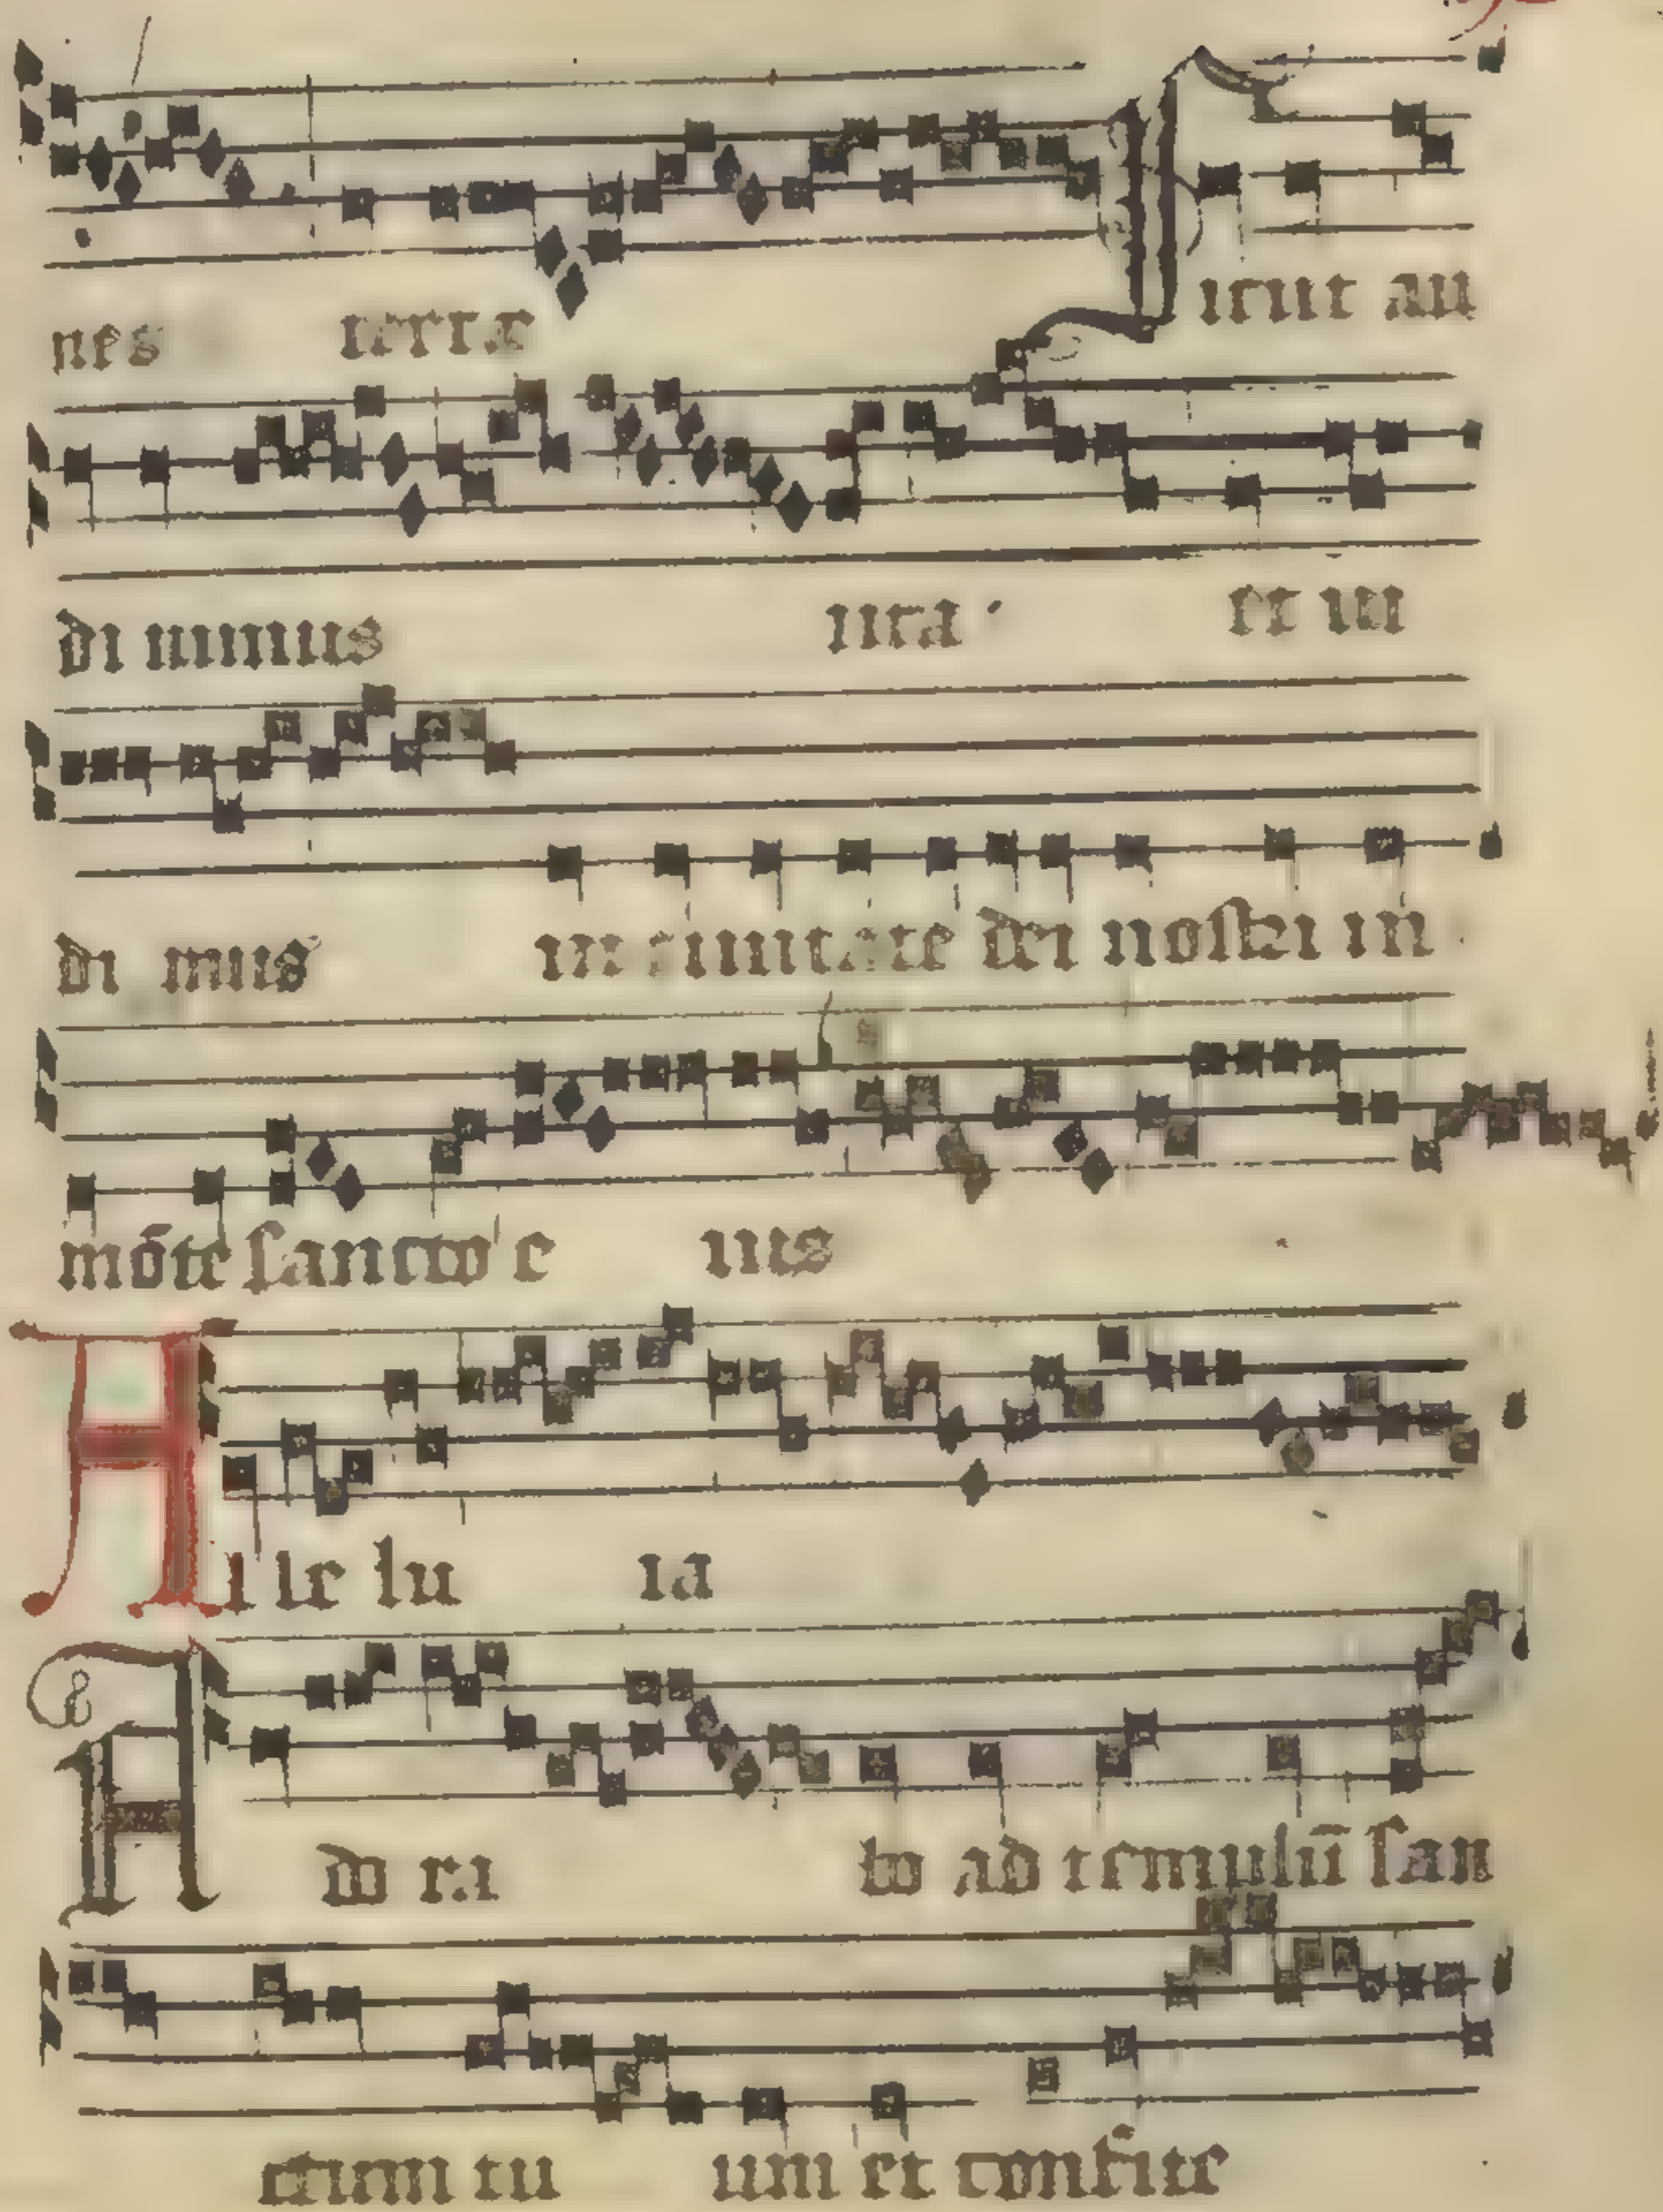 nes terre Sicut au
di uimus ita · et ui
di mus in ciuitate dei nostri in
mōte sancto e ius
Al le lu ia
A do ra bo ad templū san
ctum tu um et confite